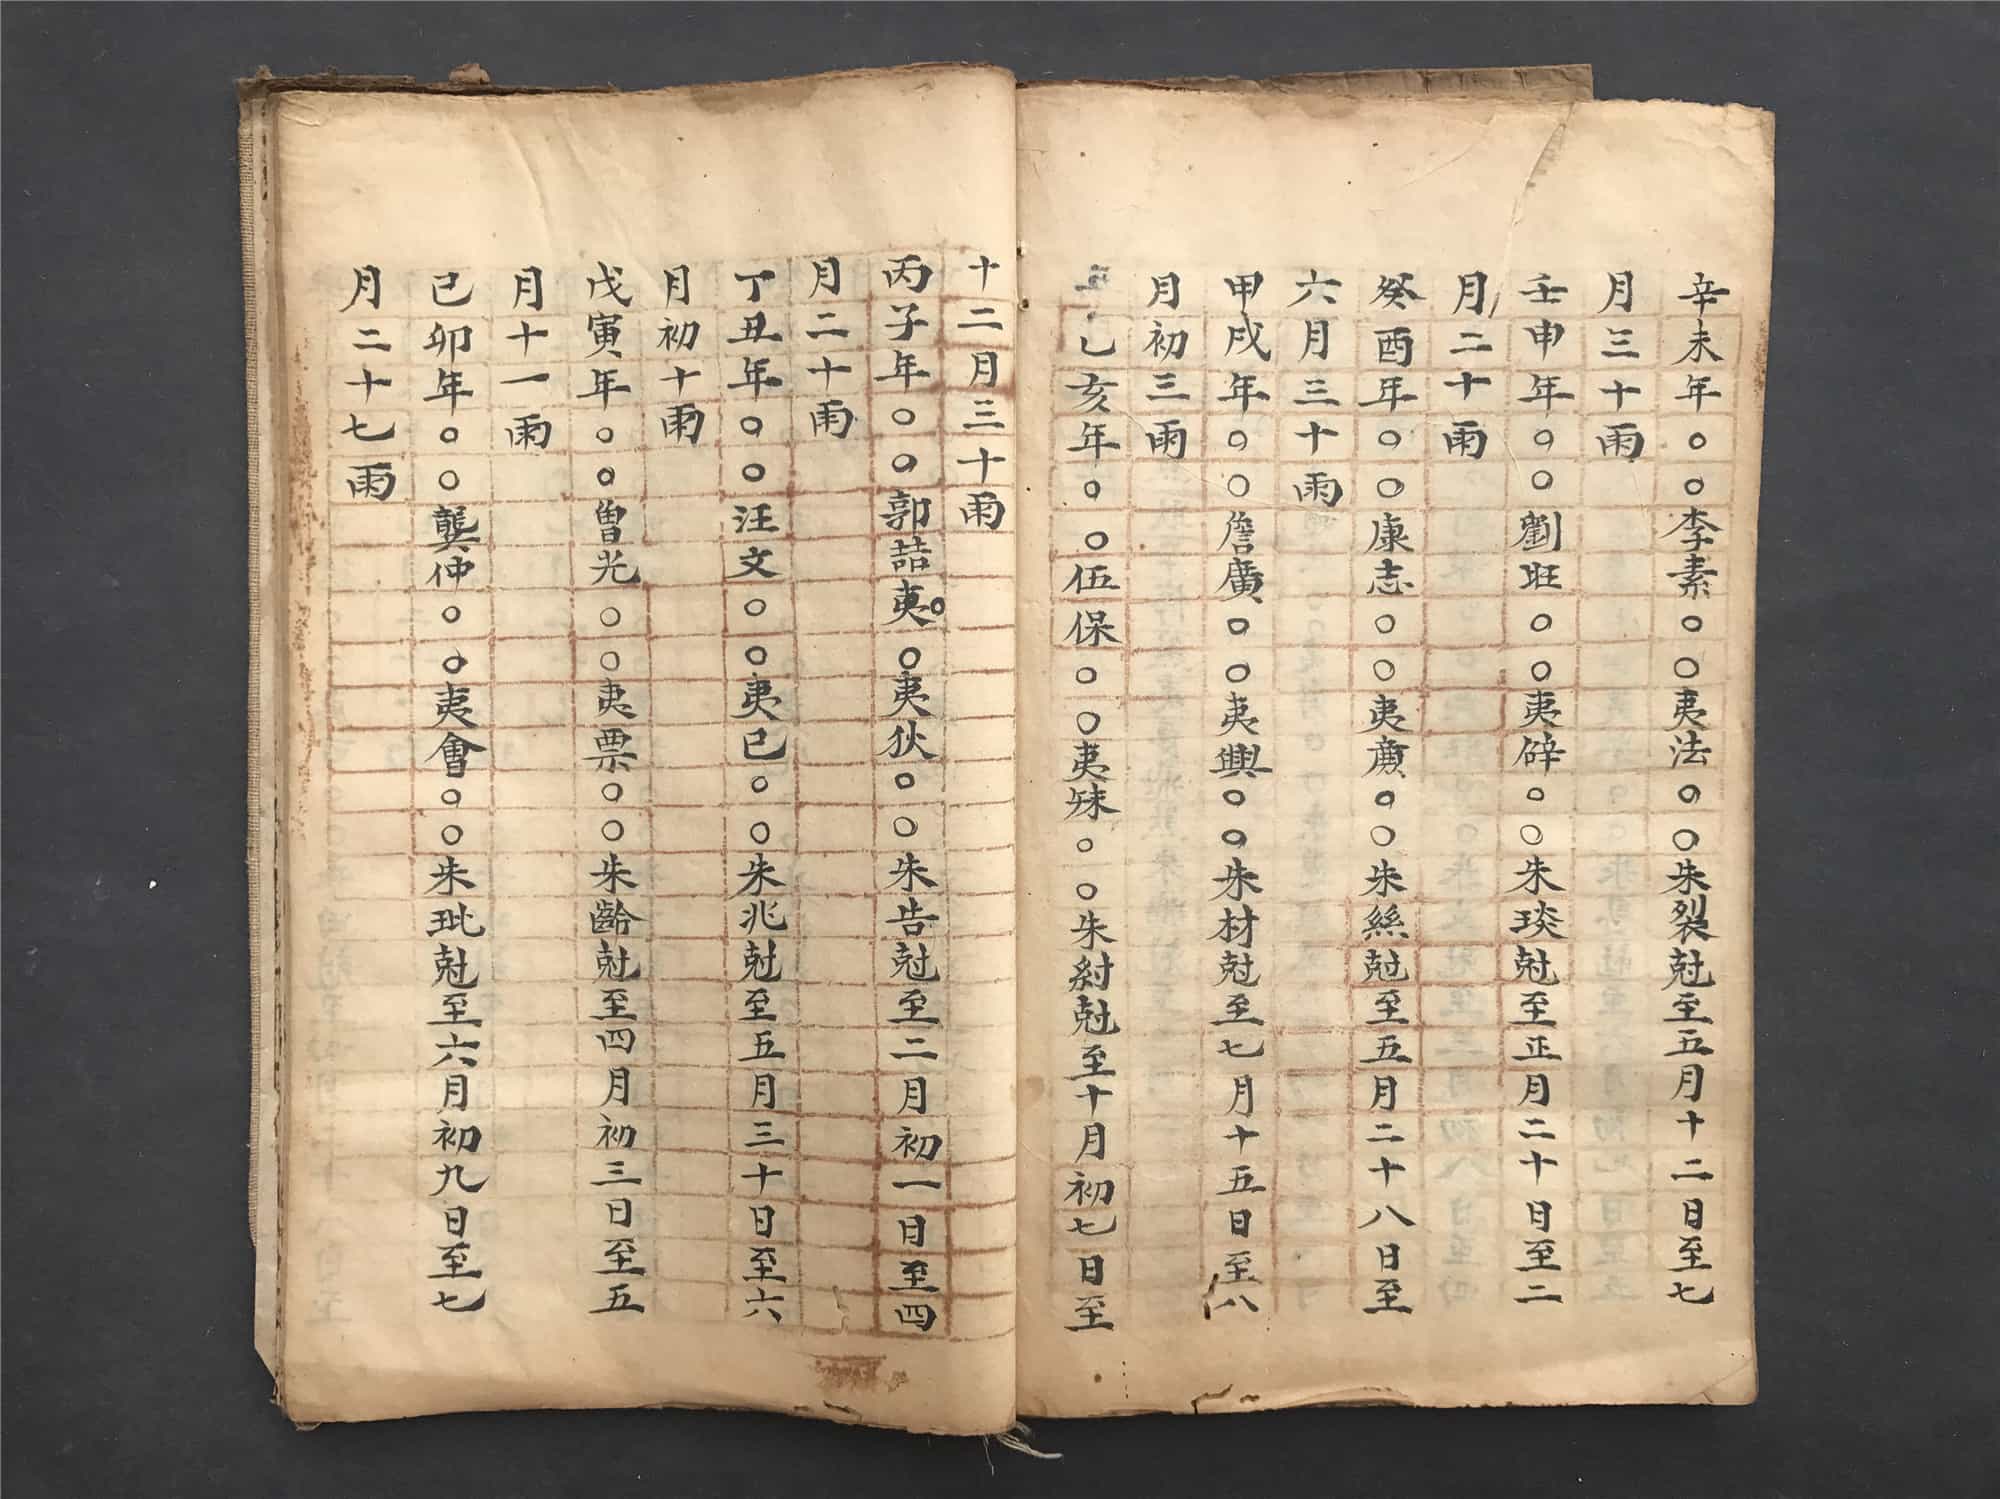 辛未年○○李素○○夷法○○朱裂尅至五月十二日至七
月三十雨
壬申年○○劉旺○○夷辟○○朱琰尅至正月二十日至二
月二十雨
癸酉年○○康志○○夷廣○○朱絲尅至五月二十八日至
六月三十雨
甲戌年○○詹廣○○夷興○○朱材尅至七月十五日至八
月初三雨
乙亥年○○伍保○○夷○○朱紂尅至十月初七日至
十二月三十雨
丙子年○○郭喆夷○○夷狄○○朱告尅至二月初一日至四
月二十雨
丁丑年○○汪文○○夷已○○朱兆尅至五月三十日至六
月初十雨
戊寅年○○曾光○○夷票○○朱齡尅至四月初三日至五
月十一雨
己卯年○○龔仲○○夷會○○朱玭尅至六月初九日至七
月二十七雨